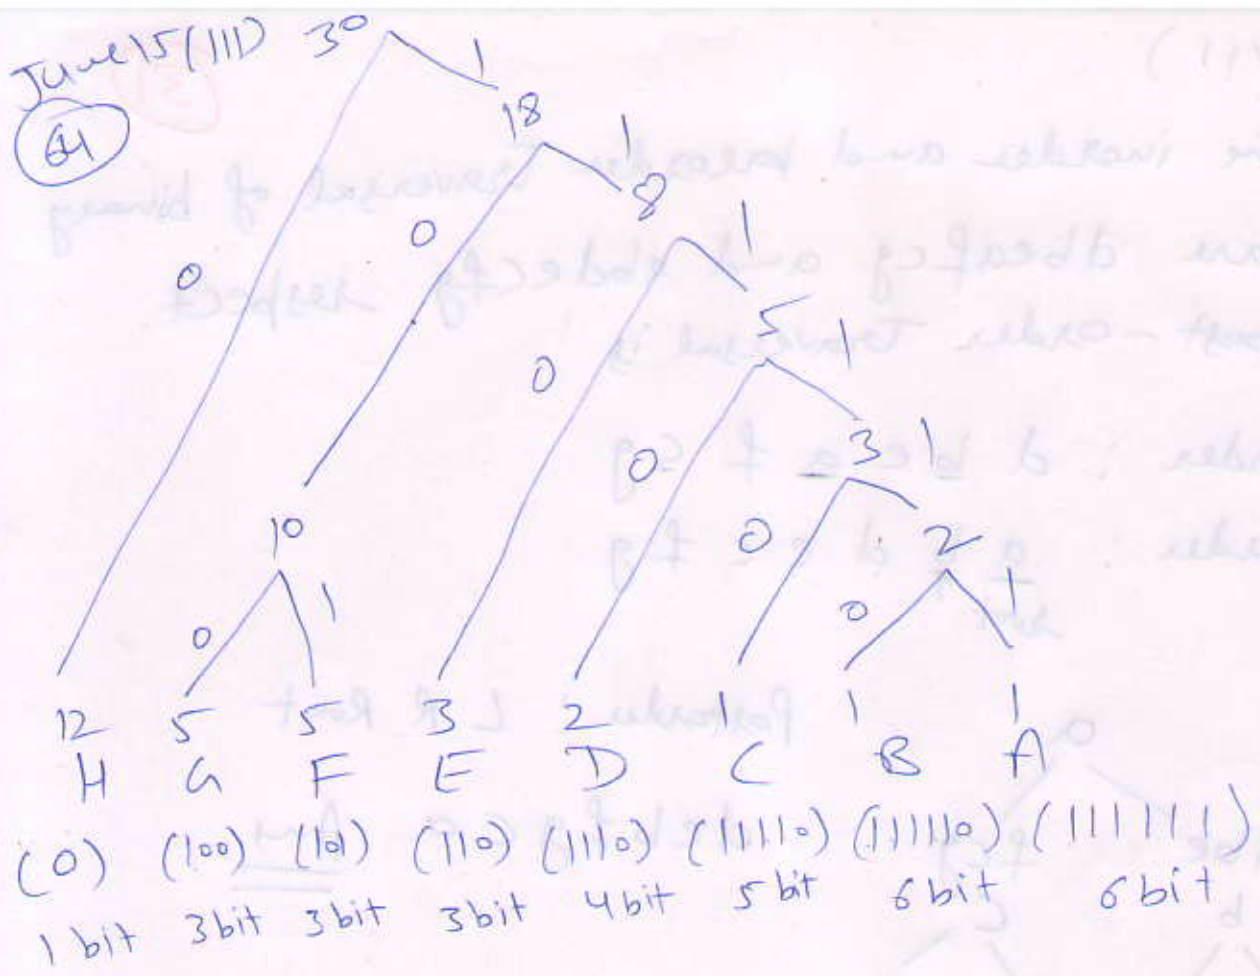 June 15 (III) 30
64
1
18
1
0
0
8
1
5
0
1
0
3
1
10
0
2
0
1
0
1
12 5 5 3 2 1 1 1
H G F E D C B A
(0) (100) (101) (110) (1110) (11110) (111110) (111111)
1 bit 3 bit 3 bit 3 bit 4 bit 5 bit 6 bit 6 bit